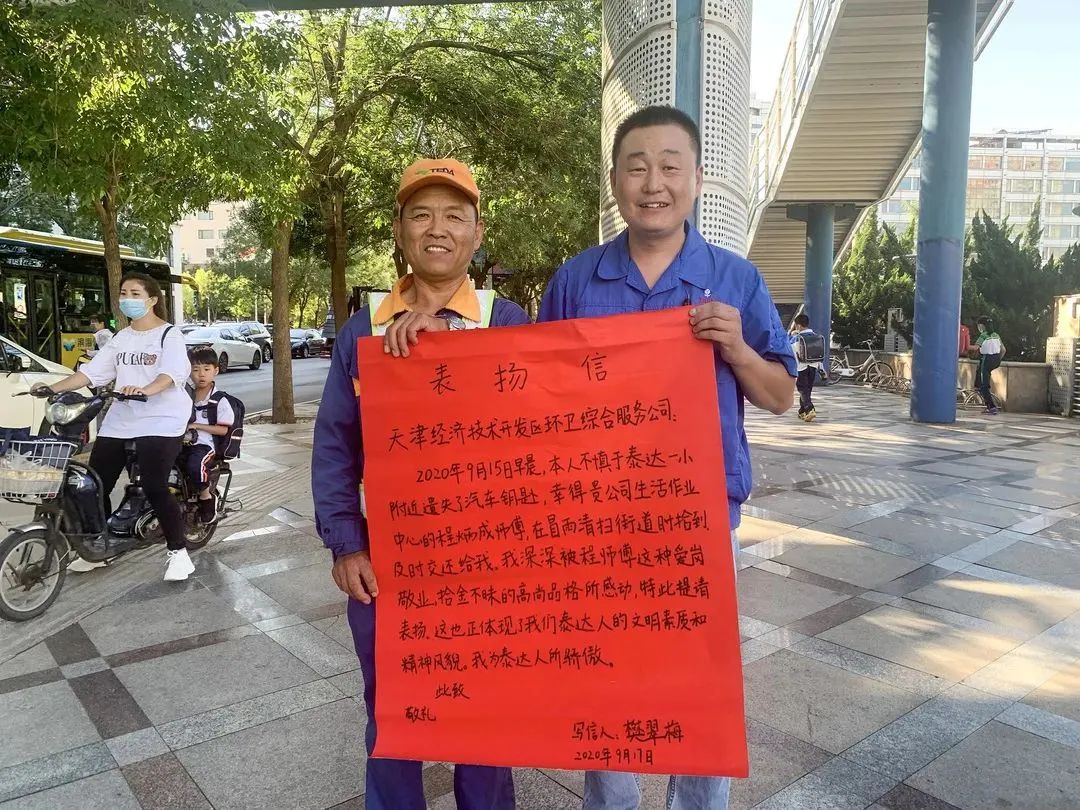 TEDA
表扬信
天津经济技术开发区环卫综合服务公司:
2020年9月15日早晨,本人不慎于泰达一小
附近遗失了汽车钥匙,幸得贵公司生活作业
中心的程炳成师傅,在冒雨清扫街道时拾到,
及时交还给我。我深深被程师傅这种爱岗
敬业、拾金不昧的高尚品格所感动,特此提请
表扬、这也正体现了我们泰达人的文明素质和
精神风貌。我为泰达人所骄傲。
此致
敬礼
写信人:樊翠梅
2020年9月17日